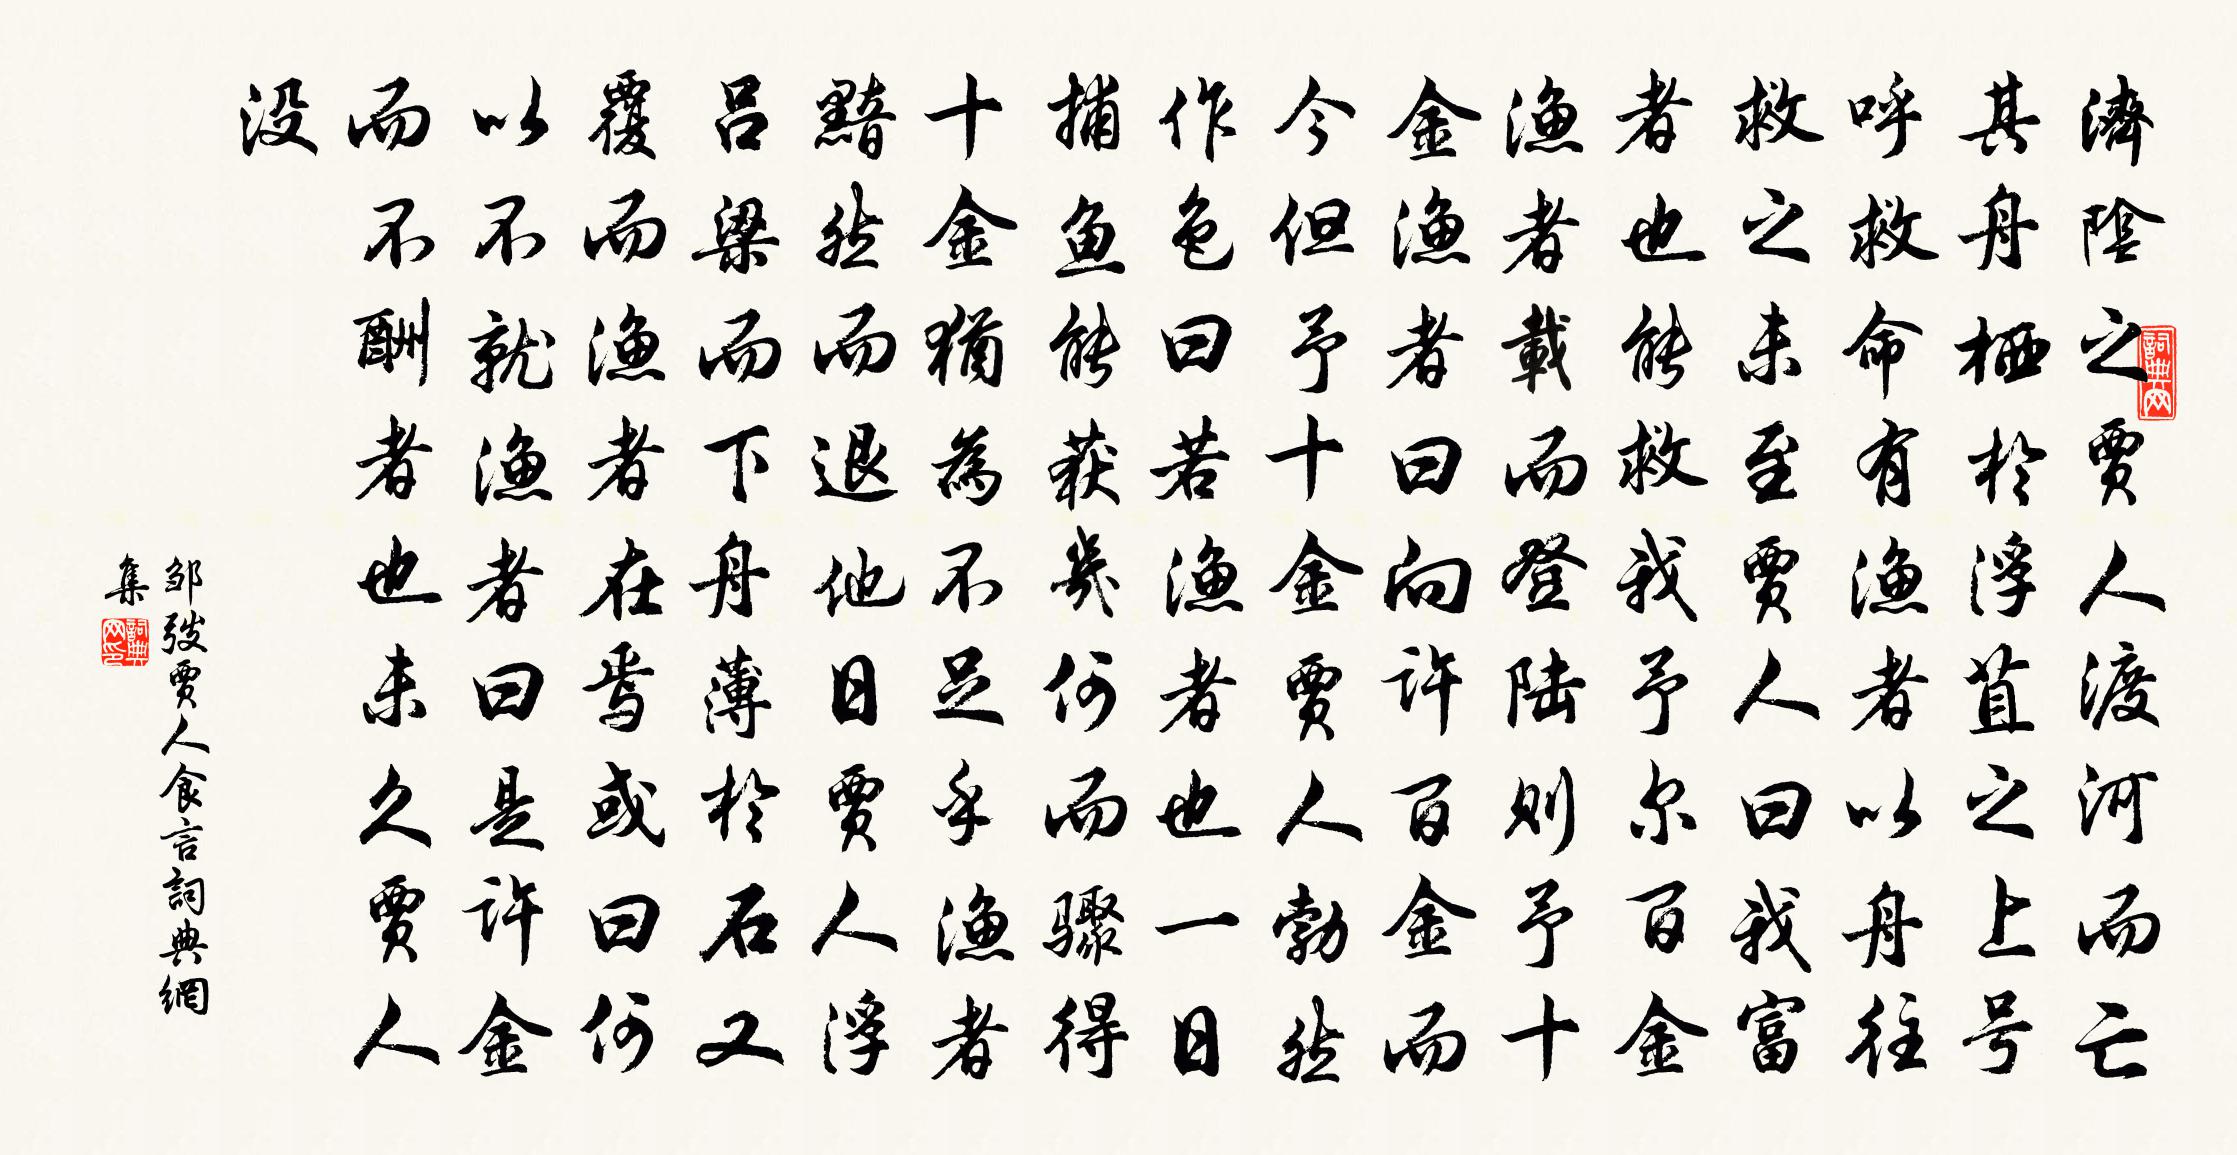 濟陰之賈人渡河而亡
其舟栖於浮苴之上号
呼救命有漁者以舟往
救之未至賈人曰我富
者也能救我予尔百金
漁者載而登陆则予十
金漁者曰向许百金而
今但予十金賈人勃然
作色曰若漁者也一日
捕魚能获幾何而骤得
十金猶為不足乎漁者
黯然而退他日賈人浮
呂梁而下舟薄於石又
覆而漁者在焉或曰何
以不就漁者曰是许金
而不酬者也未久賈人
没
邹弢賈人食言詞典網
集
詞典网
詞典网印